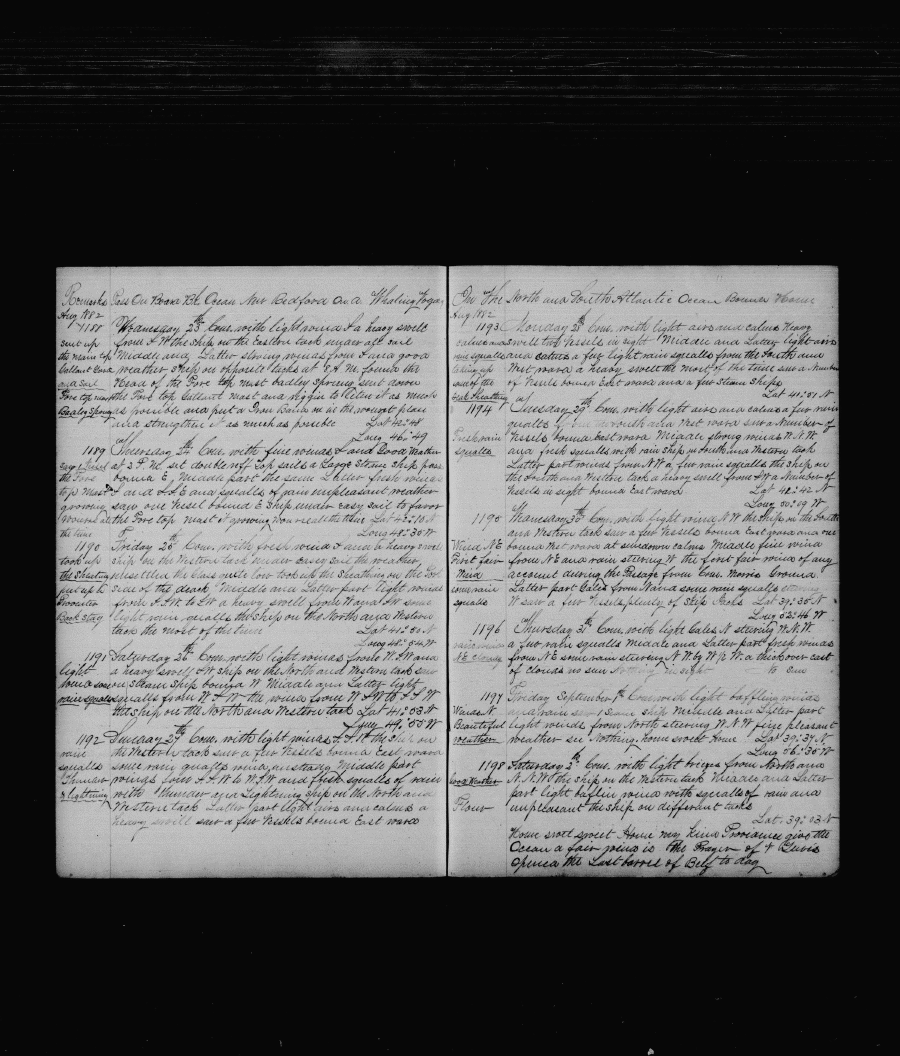 Remarks Pass On Board Bk Ocean New Bedford and Whaling Voyage
Aug 1882
1188 Wednesday 23th Coms. with light winds S a heavy swell
sent up from S W the ship on the Eastern tack under all sail
the main top Middle and Latter strong winds from S and a good
Gallant Yard weather ship on opposite tacks at 8 A M found the
and sail Head of the Fore top mast badley Sprung sent down
Fore top mast the Fore top Gallant mast and riggin to releive it as much
Badley Sprung as possible and put a Iron Band on it in the rought place
and strengthen it as much as possible Lat 42°=48
Long 46°=49
1189 Thursday 24th Com. with fine winds S and Good Weather
at 2 P. M. set double reff Top sails a Large Steam Ship pass
the Fore bound E, Middle part the same Latter fresh winds
top Mast S and S S E and squalls of rain unpleasant weather
growing saw one Vessel bound E Ship under easy sail to favor
worse all the Fore top mast it growing worse all the time Lat 42°=10 N
the time Long 48°=30 W
1190 Friday 25th Com. with fresh winds S and a heavy swell
took up ship on the Western tack under easey sail the weather
the Sheathing unsettled the Glass quite low took up the Sheathing on the Port
put up the side of the deack Middle and Latter part light winds
from S S W. to S W a heavy swell from Ward S W some
Back Stay light rain squalls the ship on the North and Western
tack the most of the time Lat 41°=50 N
Long 48°=54 W
1191 Saturday 26th Com. with light winds from W. S W and
light a heavy swell S W. ship on the North and Western tack saw
one Steam Ship bound W Middle and Latter light
rain squalls squalls from W S W the wind from W S W to S S W
the ship on the North and Western tack Lat 41°=53 N
Long 49°=55 W
1192 Sunday 27th Com. with light winds S S W the Ship on
rain the Western tack saw a few Vessels bound East ward
squalls some rain squalls wind unsteady Middle part
Thunder winds from S S W to W S W and fresh squalls of rain
& lightning with thunder and Lightning ship on the North and
Western tack Latter part light airs and calms a
heavy swell saw a few Vessels bound East ward
In The North and South Atlantic Ocean Bound Home
Aug 1882
1193 Monday 28th Com. with light airs and calms heavy
calms and swell two Vessels in sight Middle and Latter light airs
rain squalls and calms a few light rain squalls from the South and
taking up West ward a heavy swell the most of the time saw a Number
side of the of Vessels bound East ward and a few Steam Ships
deck Sheathing Lat 41°=51 N
1194 Tuesday 29th Com. with light airs and calms a few rain
squalls from the South and West ward saw a Number of
Fresh rain Vessels bound East ward Meadle strong winds W. N. W.
squalls and fresh squalls with rain Ship on South and Western tack
Latter part winds from N W a few rain squalls the ship on
the South and Western tack a heavy swell from S W a Number of
Vessels in sight bound East ward Lat 41°=42 N
Long 50°=09 W
1195 Wednesday 30th Com. with light wind N. W. the ship on the South
and Western tack saw a few Vessels bound East ward and one
Wind N E bound West ward at sundown calms Meadle fine wind
First fair from N E and rain steering W the first fair wind of any
Wind account during the Passage from Com. Morris Ground
some rain Latter part Gales from N and some rain squalls steering
squalls W saw a few Vessels plenty of Ship Packs Lat 39°=55 N
Long 52°=46 W
1196 Thursday 31th Com. with light Gales N stering W. N. W.
a few rain squalls Meadle and Latter part fresh winds
N E Cloudy from N E some rain stearing N. W. by W ½ W. a thick over cast
of clouds no sun Nothing in sight No Sun
1197 Friday September 1th Com with light baffling winds
Winds N. and rain saw 1 Steam ship Meddle and Latter part
Beautiful light winds from North steering W. N. W fine pleasant
weather weather see Nothing. Home sweet Home Lat 39°:37 N
Long 56°:36 W
1198 Saturday 2th Com. with light breezes from North and
Good Weather N. N. W. the ship on the Western tack Meadle and Latter
part light baflin wind with squalls of rain and
Flour unpleasant the ship on differant tacks
Lat. 39°:03 N
Home swet sweet Home may kind Providence give the
Ocean a fair wind is the Prayer of
Opened the Last barrel of Beef to day